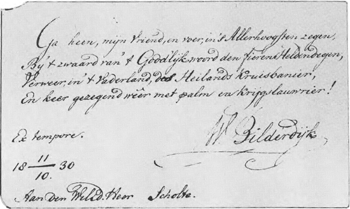 Ga heen, mijn vriend, en voer, in 's Allerhoogsten zegen,
Bij 't zwaard van 't Godlijk woord den fieren Heldendegen,
Verweer, in 't Vaderland, des Heilands Kruisbanier,
En keer gezegend weêr met palm en krijgslauwrier!
Ex tempore.
W Bilderdijk
18 11/10. 30
Aan den WelEd. Heer Scholte.